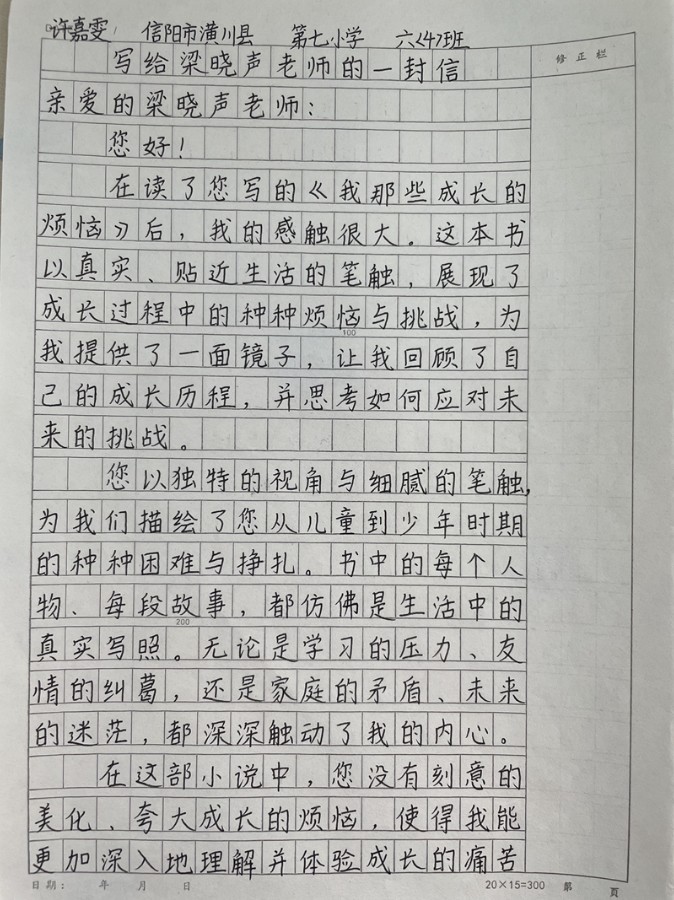 许嘉雯 信阳市潢川县 第七小学 六〈4〉班
修正栏
写给梁晓声老师的一封信
亲爱的梁晓声老师：
您好！
在读了您写的《我那些成长的
烦恼》后，我的感触很大。这本书
以真实、贴近生活的笔触，展现了
成长过程中的种种烦恼与挑战，为
100
我提供了一面镜子，让我回顾了自
己的成长历程，并思考如何应对未
来的挑战。
您以独特的视角与细腻的笔触，
为我们描绘了您从儿童到少年时期
的种种困难与挣扎。书中的每个人
物、每段故事，都仿佛是生活中的
200
真实写照。无论是学习的压力、友
情的纠葛，还是家庭的矛盾、未来
的迷茫，都深深触动了我的内心。
在这部小说中，您没有刻意的
美化、夸大成长的烦恼，使得我能
更加深入地理解并体验成长的痛苦
日期： 年 月 日 20×15=300 第 页